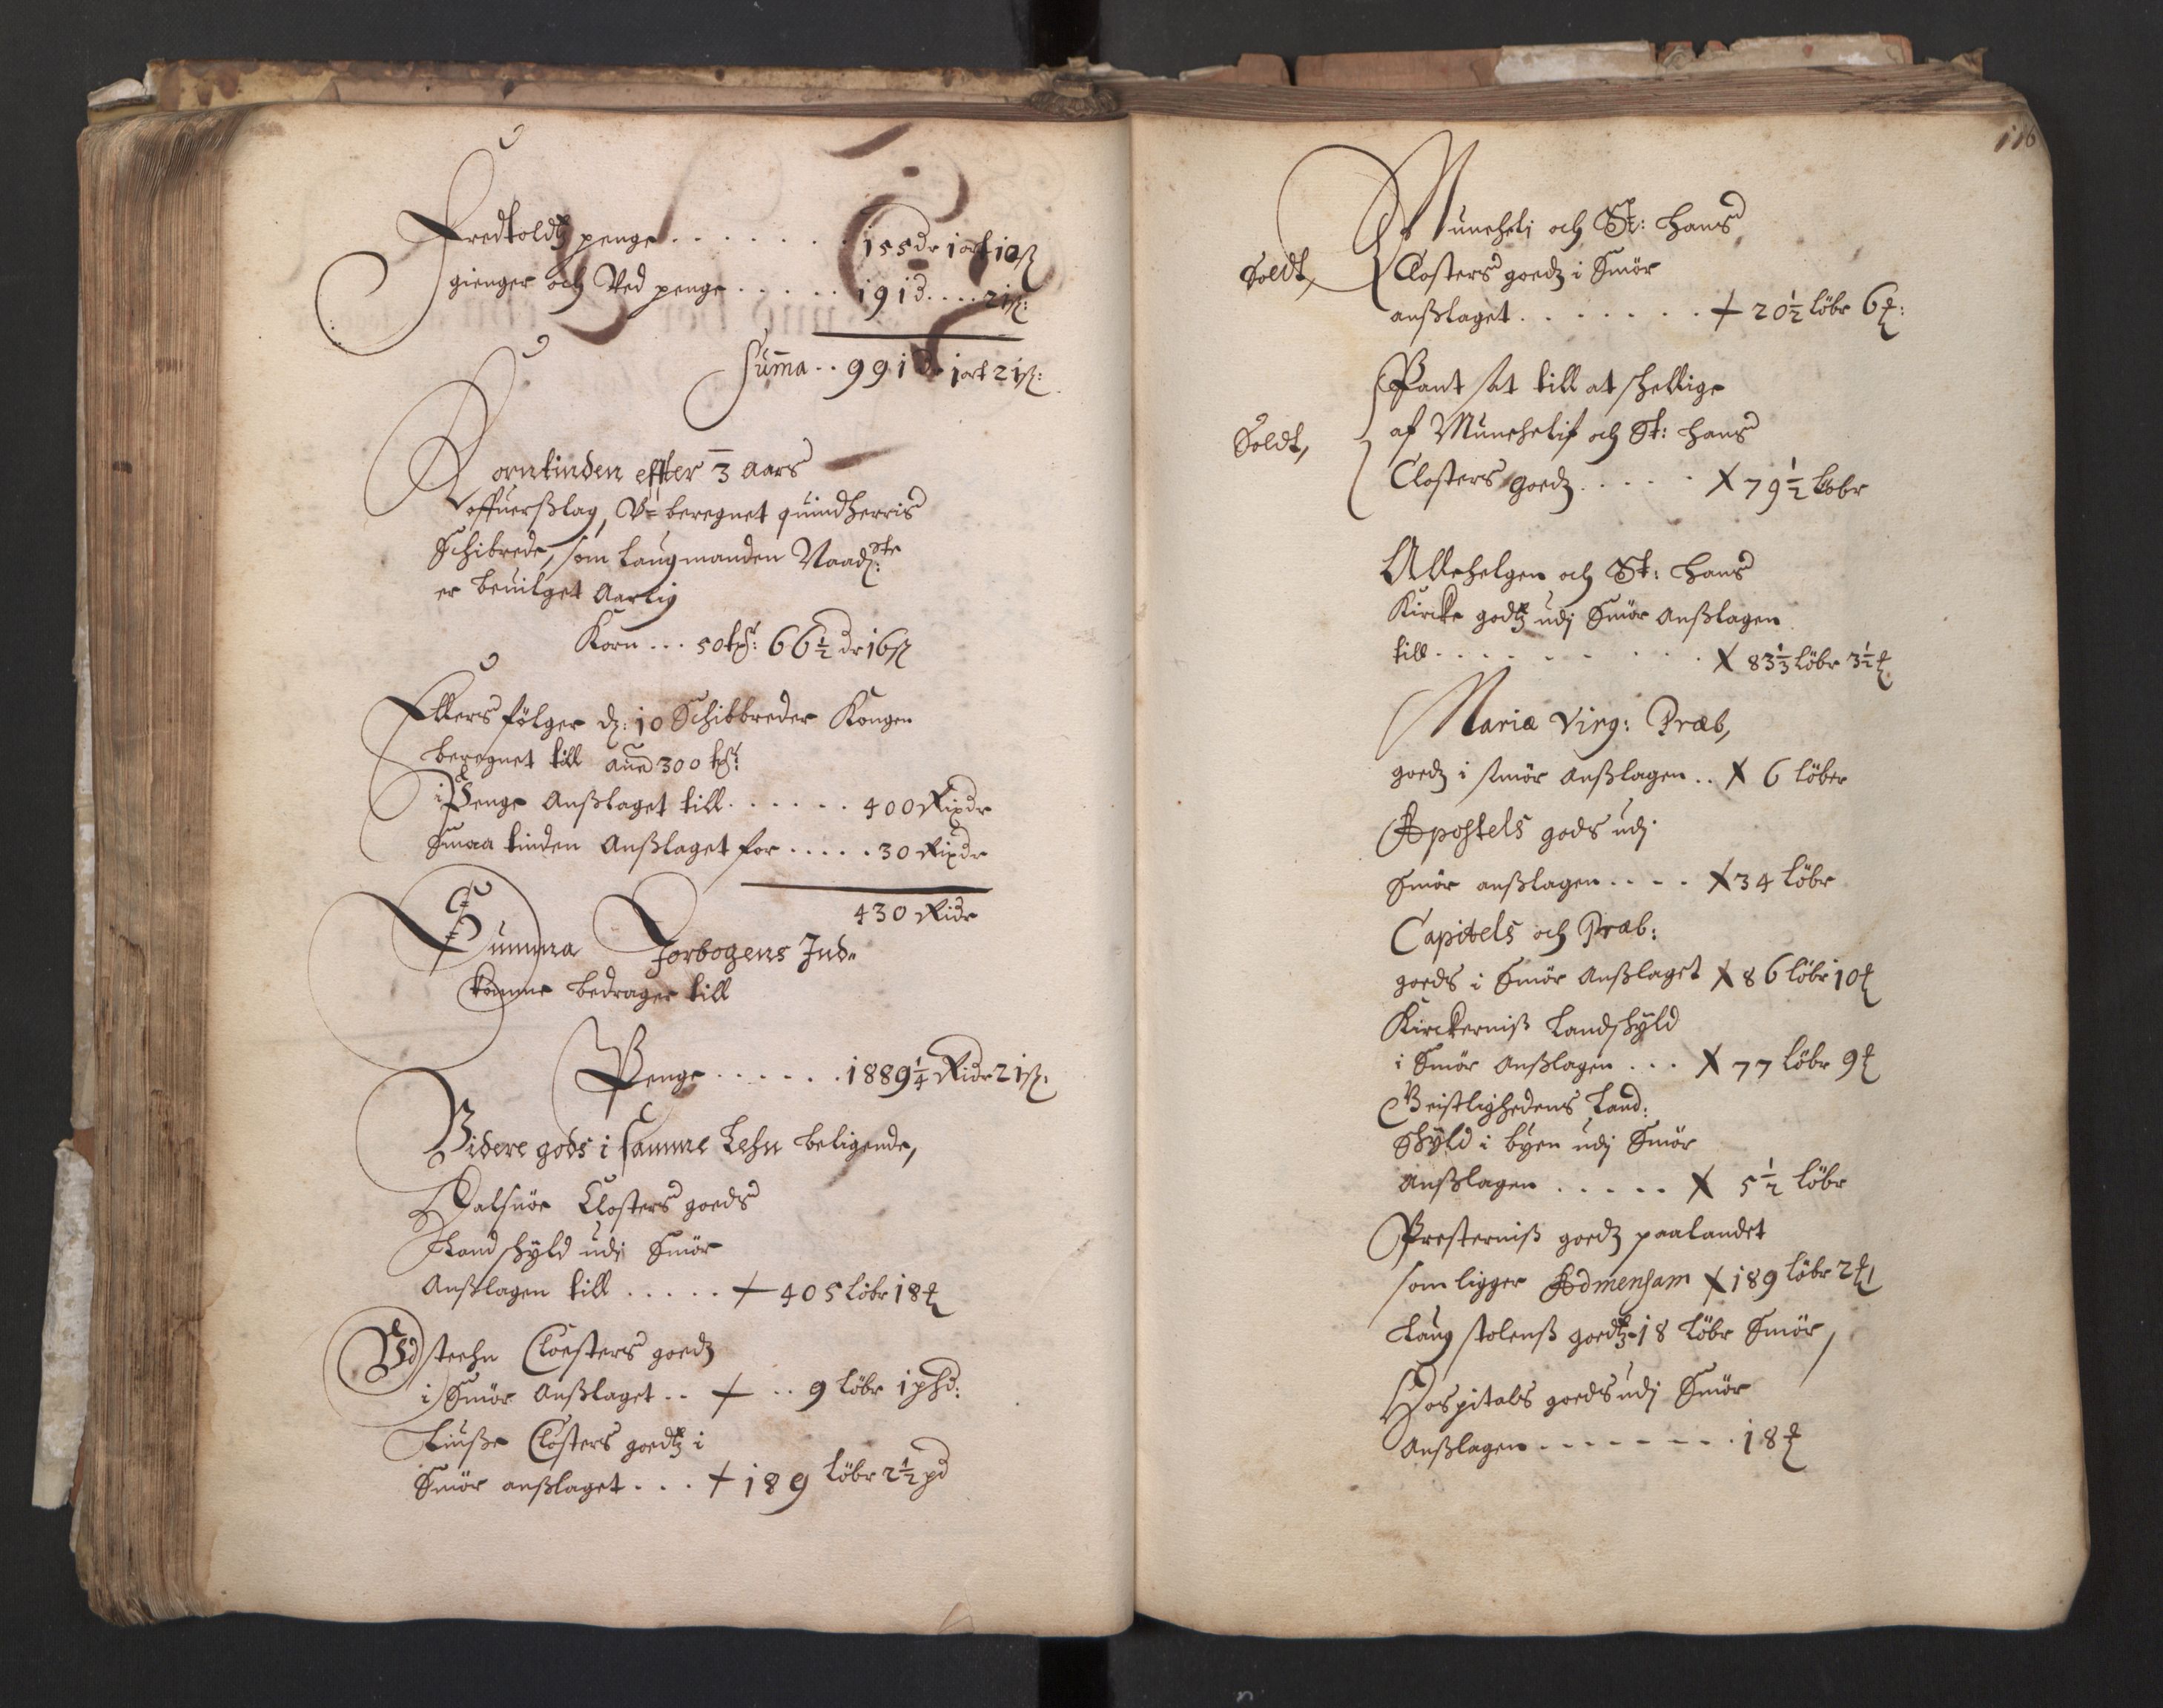 Fredtoldtz penge . . . . . . . 155 dr 1 ort 10 ß
gienger och Ved penge . . . . . 191 d . . . . 21 ß:
Sum̄a . . 991 dr 1 ort 21 ß:
Korntinden effter 3 Aars
offuerßlag, V=beregnet quindherris
Schibrede, som Laugmanden Naad:ste
er beuilget Aarlig
Korn . . . 50 tß: 66½ dr 16 ß
Ellers følger dz: 10 Schibbreder Kongen
beregnet till 300 tß:
i Penge Anßlaget till . . . . . . 400 Rixdr
Smaa tinden Anßlaget for . . . . . 30 Rixdr
430 Ridr
Summa Jorbogens Ind=
komme bedrager till
Penge . . . . . . 1889¼ Ridr 21 ß:
Videre gods i samme Lehn beligende,
Halsnöe Closters goeds
Landschyld udi Smör
Anßlagen till . . . . . + 405 löbr 18 ℔
Vdsteehn Cloesters goedz
i Smör Anßlaget . . + . . 9 löbr 1 phd:
Liuße Closters goedtz i
Smör anßlaget . . . + 189 löbr 2½ pd
116
Muncheli och St: Hans
Soldt, Closters goedz i Smör
anßlaget . . . . . . . + 20½ löbr 6 ℔:
Pant sat till at schellige
Soldt, af Munchelif och St: Hans
Closters goedz . . . . . X 79½ löbr
Allehelgen och St: Hans
Kircke godtz udj Smör Anßlagen
till . . . . . . . . . X 83⅓ löbr 3½ ℔
Mariæ Virg: Præb,
goedz i smör Anßlagen . . X 6 löber
Apostels gods udj
Smör anßlagen . . . . X 34 löbr
Capitels och Præb:
goeds i Smör Anßlaget X 86 löbr 10 ℔
Kirckerniß Landschyld
i Smör Anßlagen . . . X 77 löbr 9 ℔
Geistlighedens Land:
Schyld i byen udj Smör
Anßlagen . . . . . X 5½ löbr
Presterniß goedz paalandet
som ligger Admensam X 189 löbr 2 ℔
Laug stolenß goedtz 18 löbr Smör,
Hospitals goeds udj Smör
Anßlagen . . . . . . . . 18 ℔